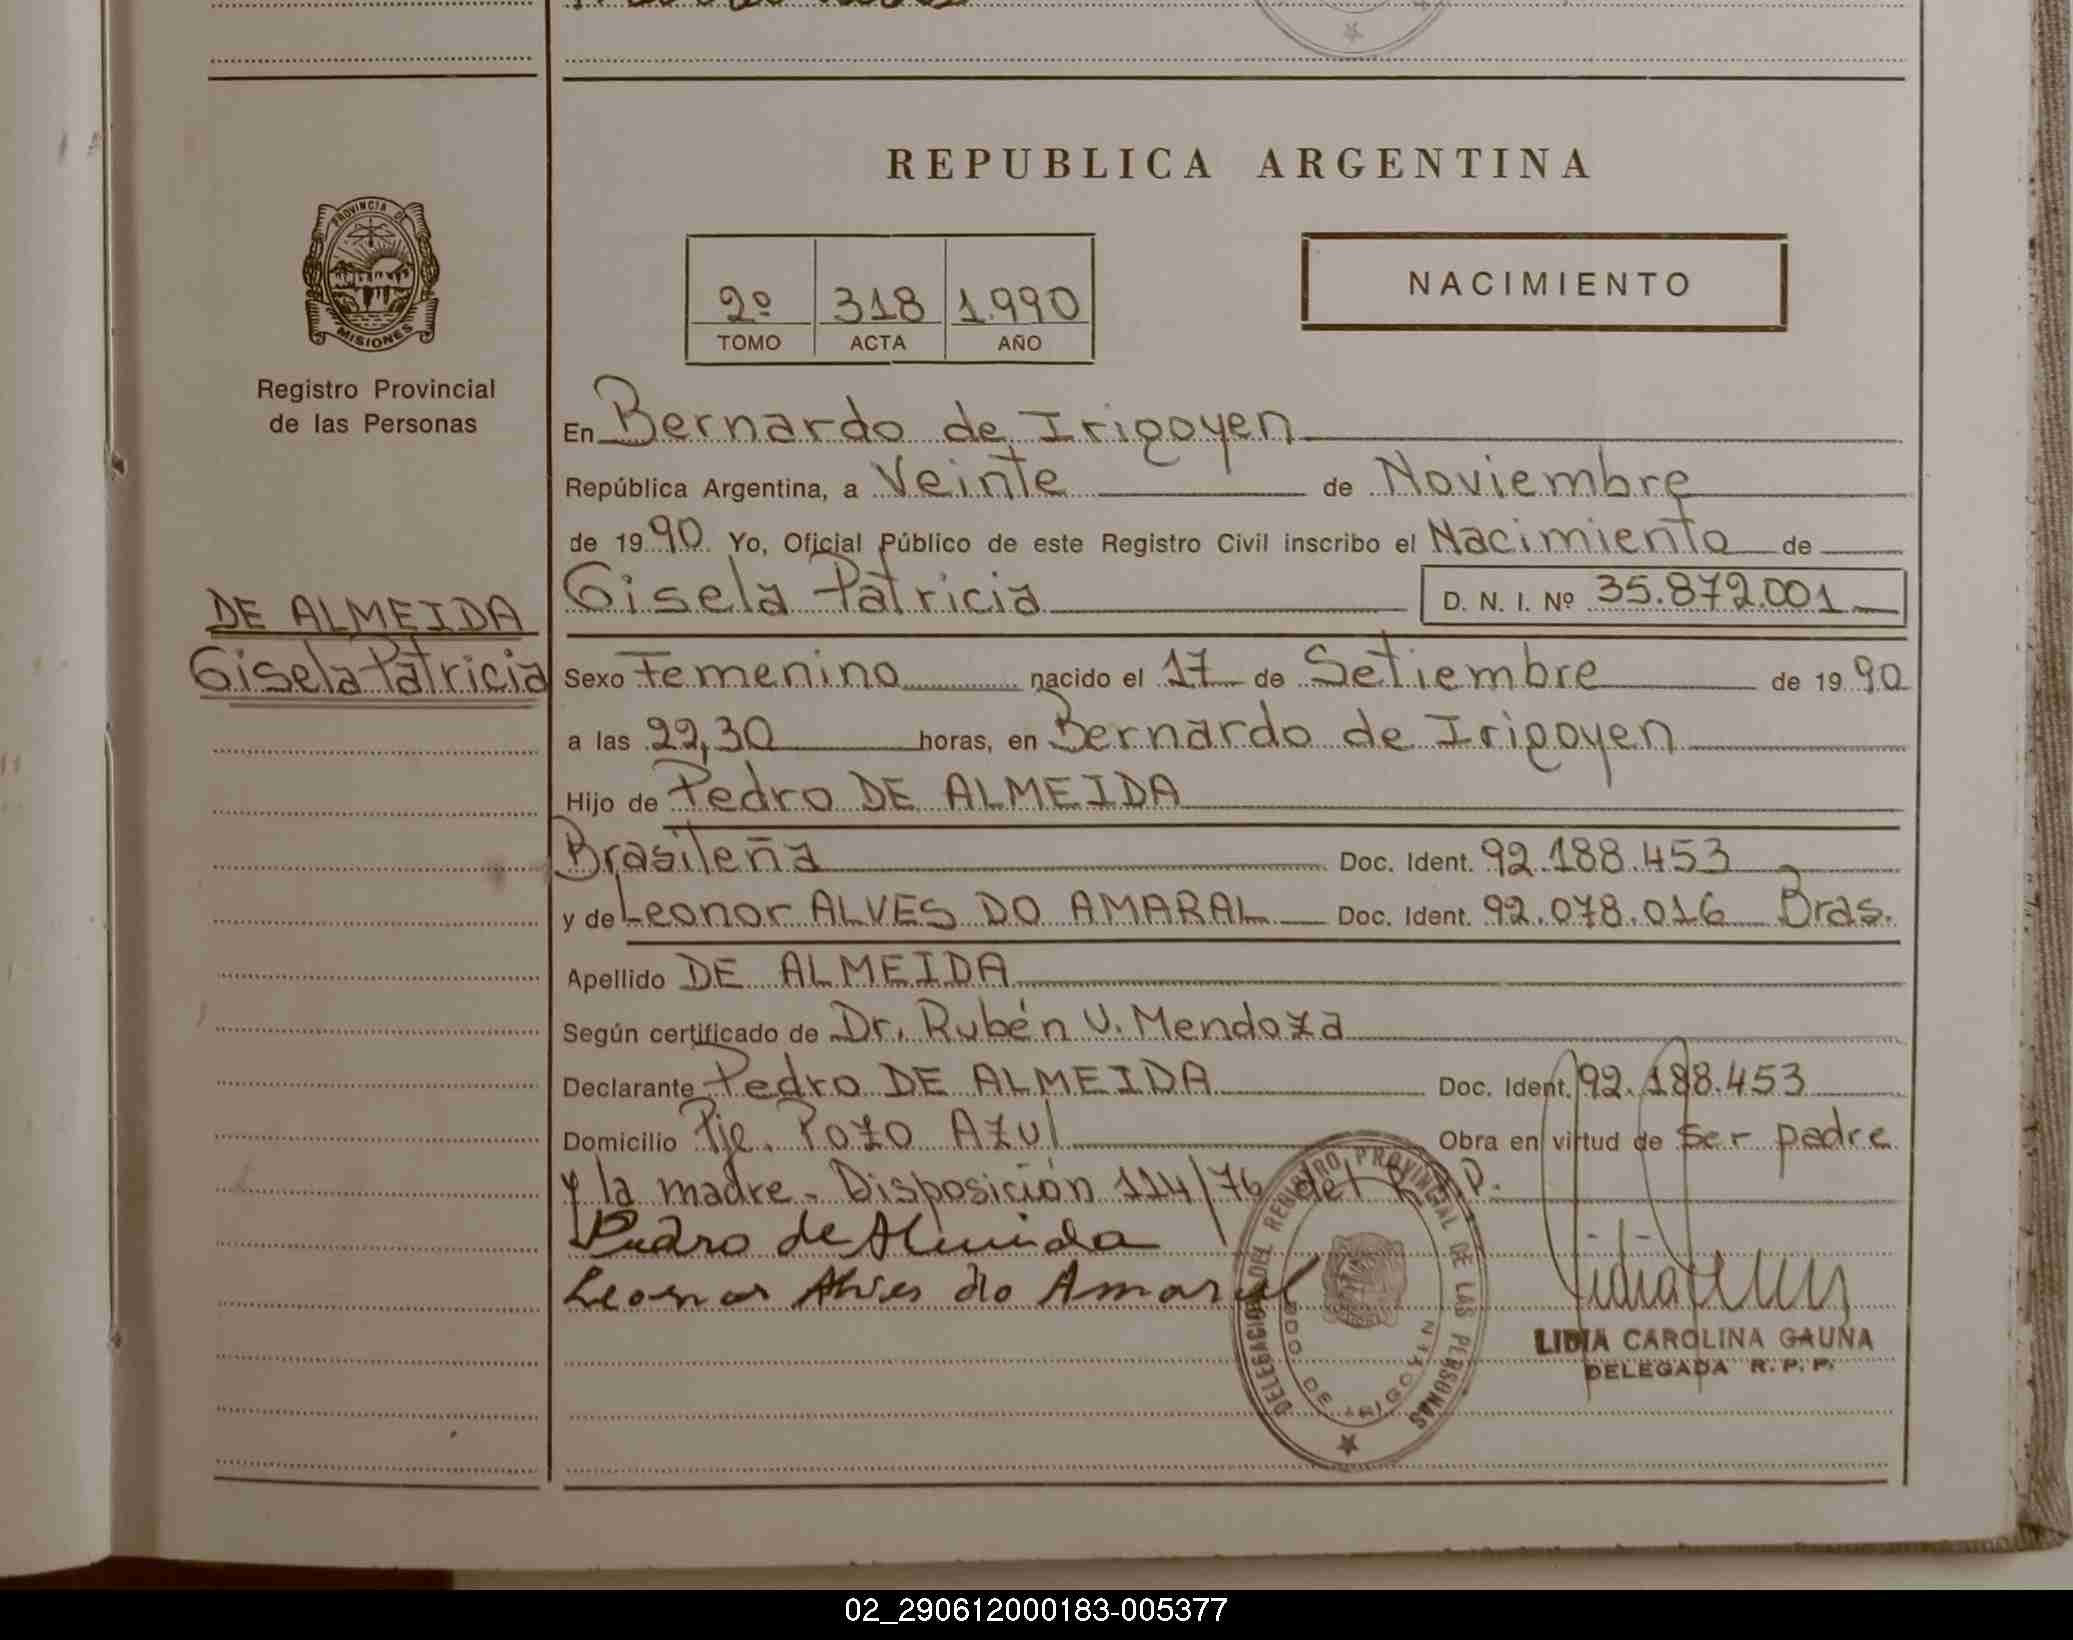 REPUBLICA ARGENTINA
PROVINCIA DE
MISIONES
Registro Provincial
de las Personas
2º 318 1.990
TOMO ACTA AÑO
NACIMIENTO
En Bernardo de Irigoyen
República Argentina, a Veinte de Noviembre
de 1990 Yo, Oficial Público de este Registro Civil inscribo el Nacimiento de
Gisela Patricia D. N. I. Nº 35.872.001
DE ALMEIDA
Gisela Patricia
Sexo Femenino nacido el 17 de Setiembre de 1990
a las 22,30 horas, en Bernardo de Irigoyen
Hijo de Pedro DE ALMEIDA
Brasileña Doc. Ident. 92.188.453
y de Leonor ALVES DO AMARAL Doc. Ident. 92.078.016 Bras.
Apellido DE ALMEIDA
Según certificado de Dr. Rubén V. Mendoza
Declarante Pedro DE ALMEIDA Doc. Ident. 92.188.453
Domicilio Pje. Pozo Azul Obra en virtud de ser padre
y la madre. Disposición 114/76 del R.P.P.
Pedro de Almeida
Leonor Alves do Amaral
DELEGACION DEL REGISTRO PROVINCIAL DE LAS PERSONAS
BDO DE IRIGOYEN
LIDIA CAROLINA GAUNA
DELEGADA R. P. P.
02_290612000183-005377